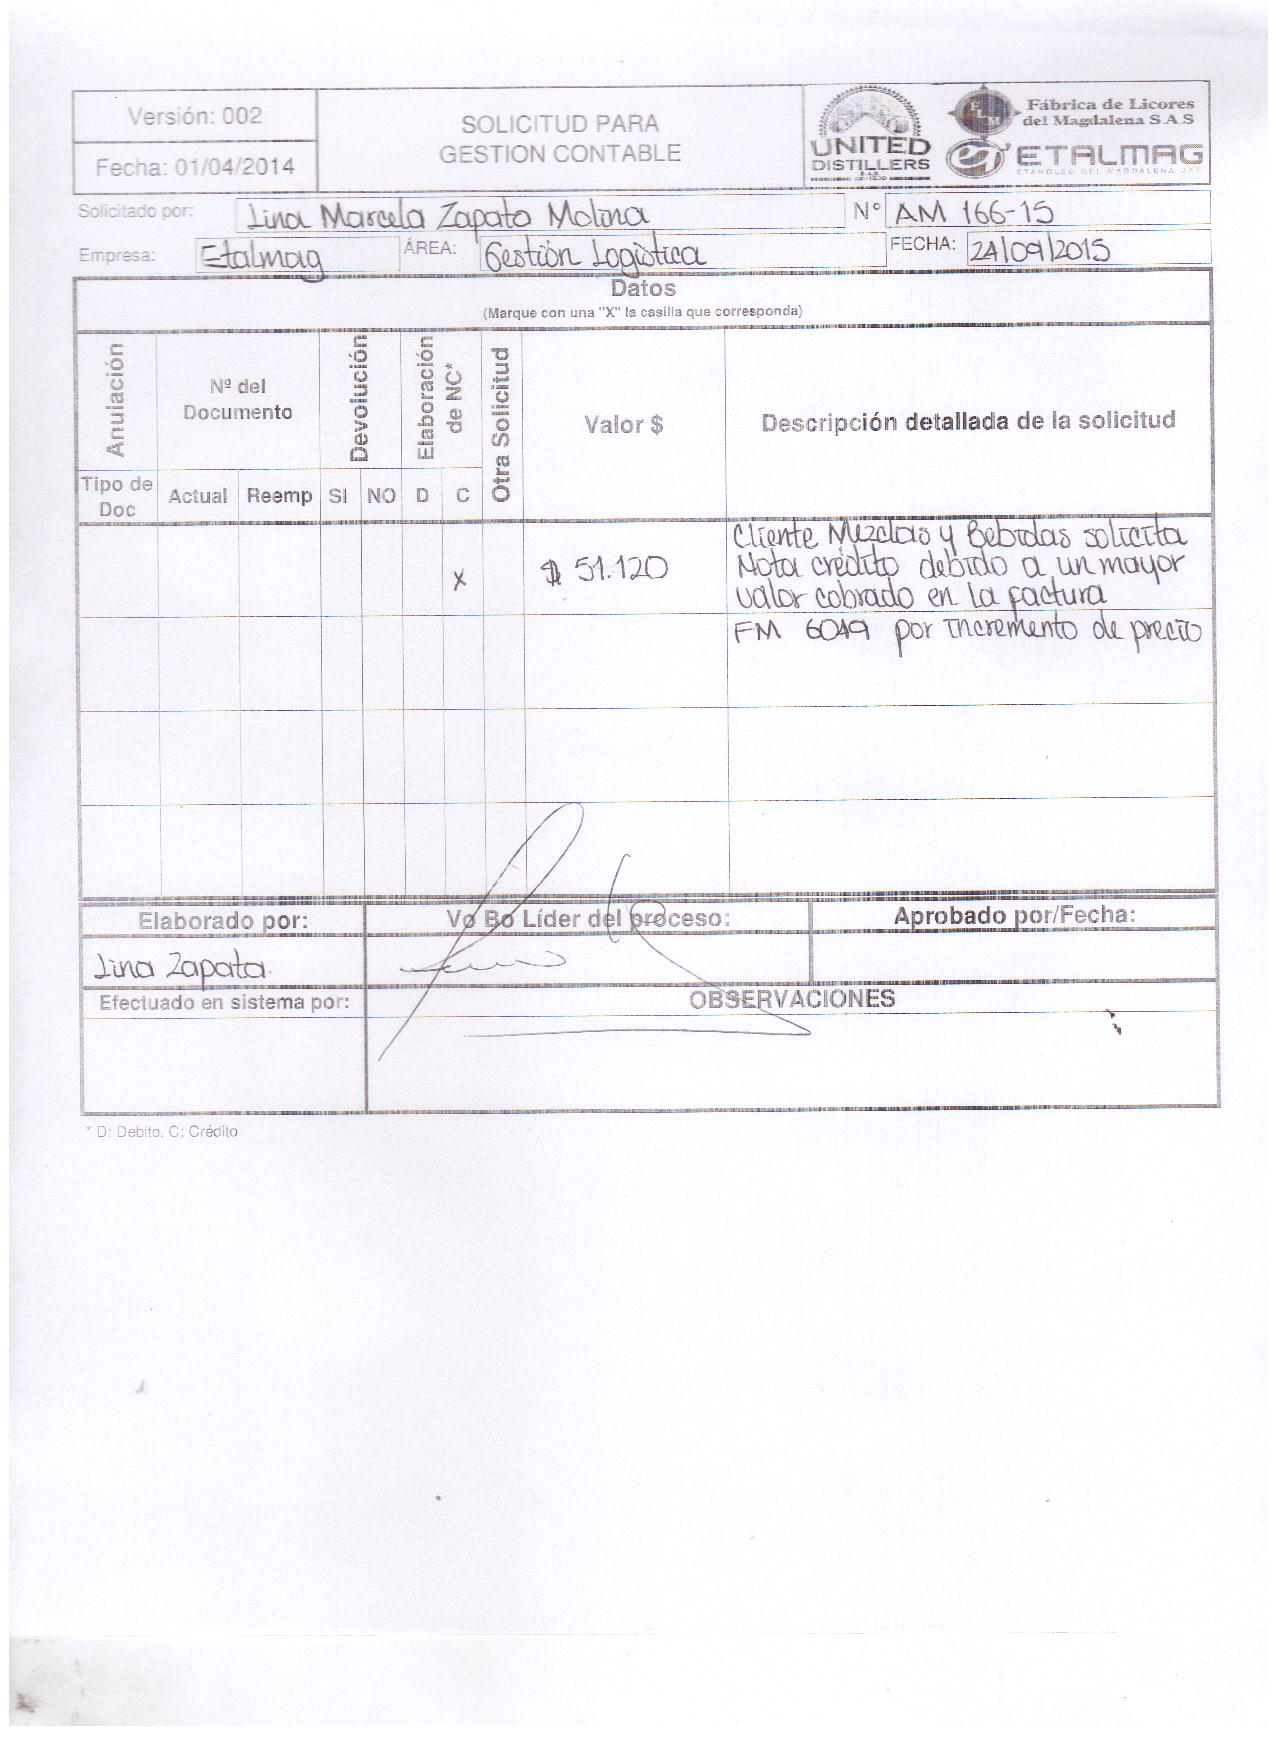 Versión: 002
Fecha: 01/04/2014
SOLICITUD PARA
GESTION CONTABLE
UNITED
DISTILLERS
S.A.S
FLM
Fábrica de Licores
del Magdalena S.A.S
ETALMAG
ETANOLES DEL MAGDALENA SAS
Solicitado por: Lina Marcela Zapata Molina N° AM 166-15
Empresa: Etalmag ÁREA: Gestión Logística FECHA: 24/09/2015
Datos
(Marque con una "X" la casilla que corresponda)
Anulación
Nº del
Documento
Devolución
Elaboración
de NC*
Otra Solicitud
Valor $
Descripción detallada de la solicitud
Tipo de
Doc
Actual Reemp SI NO D C
X
$ 51.120
Cliente Mezclas y Bebidas solicita
Nota crédito debido a un mayor
valor cobrado en la factura
FM 6049 por incremento de precio
Elaborado por: Vo Bo Líder del proceso: Aprobado por/Fecha:
Lina Zapata.
Efectuado en sistema por: OBSERVACIONES
* D: Debito. C: Crédito